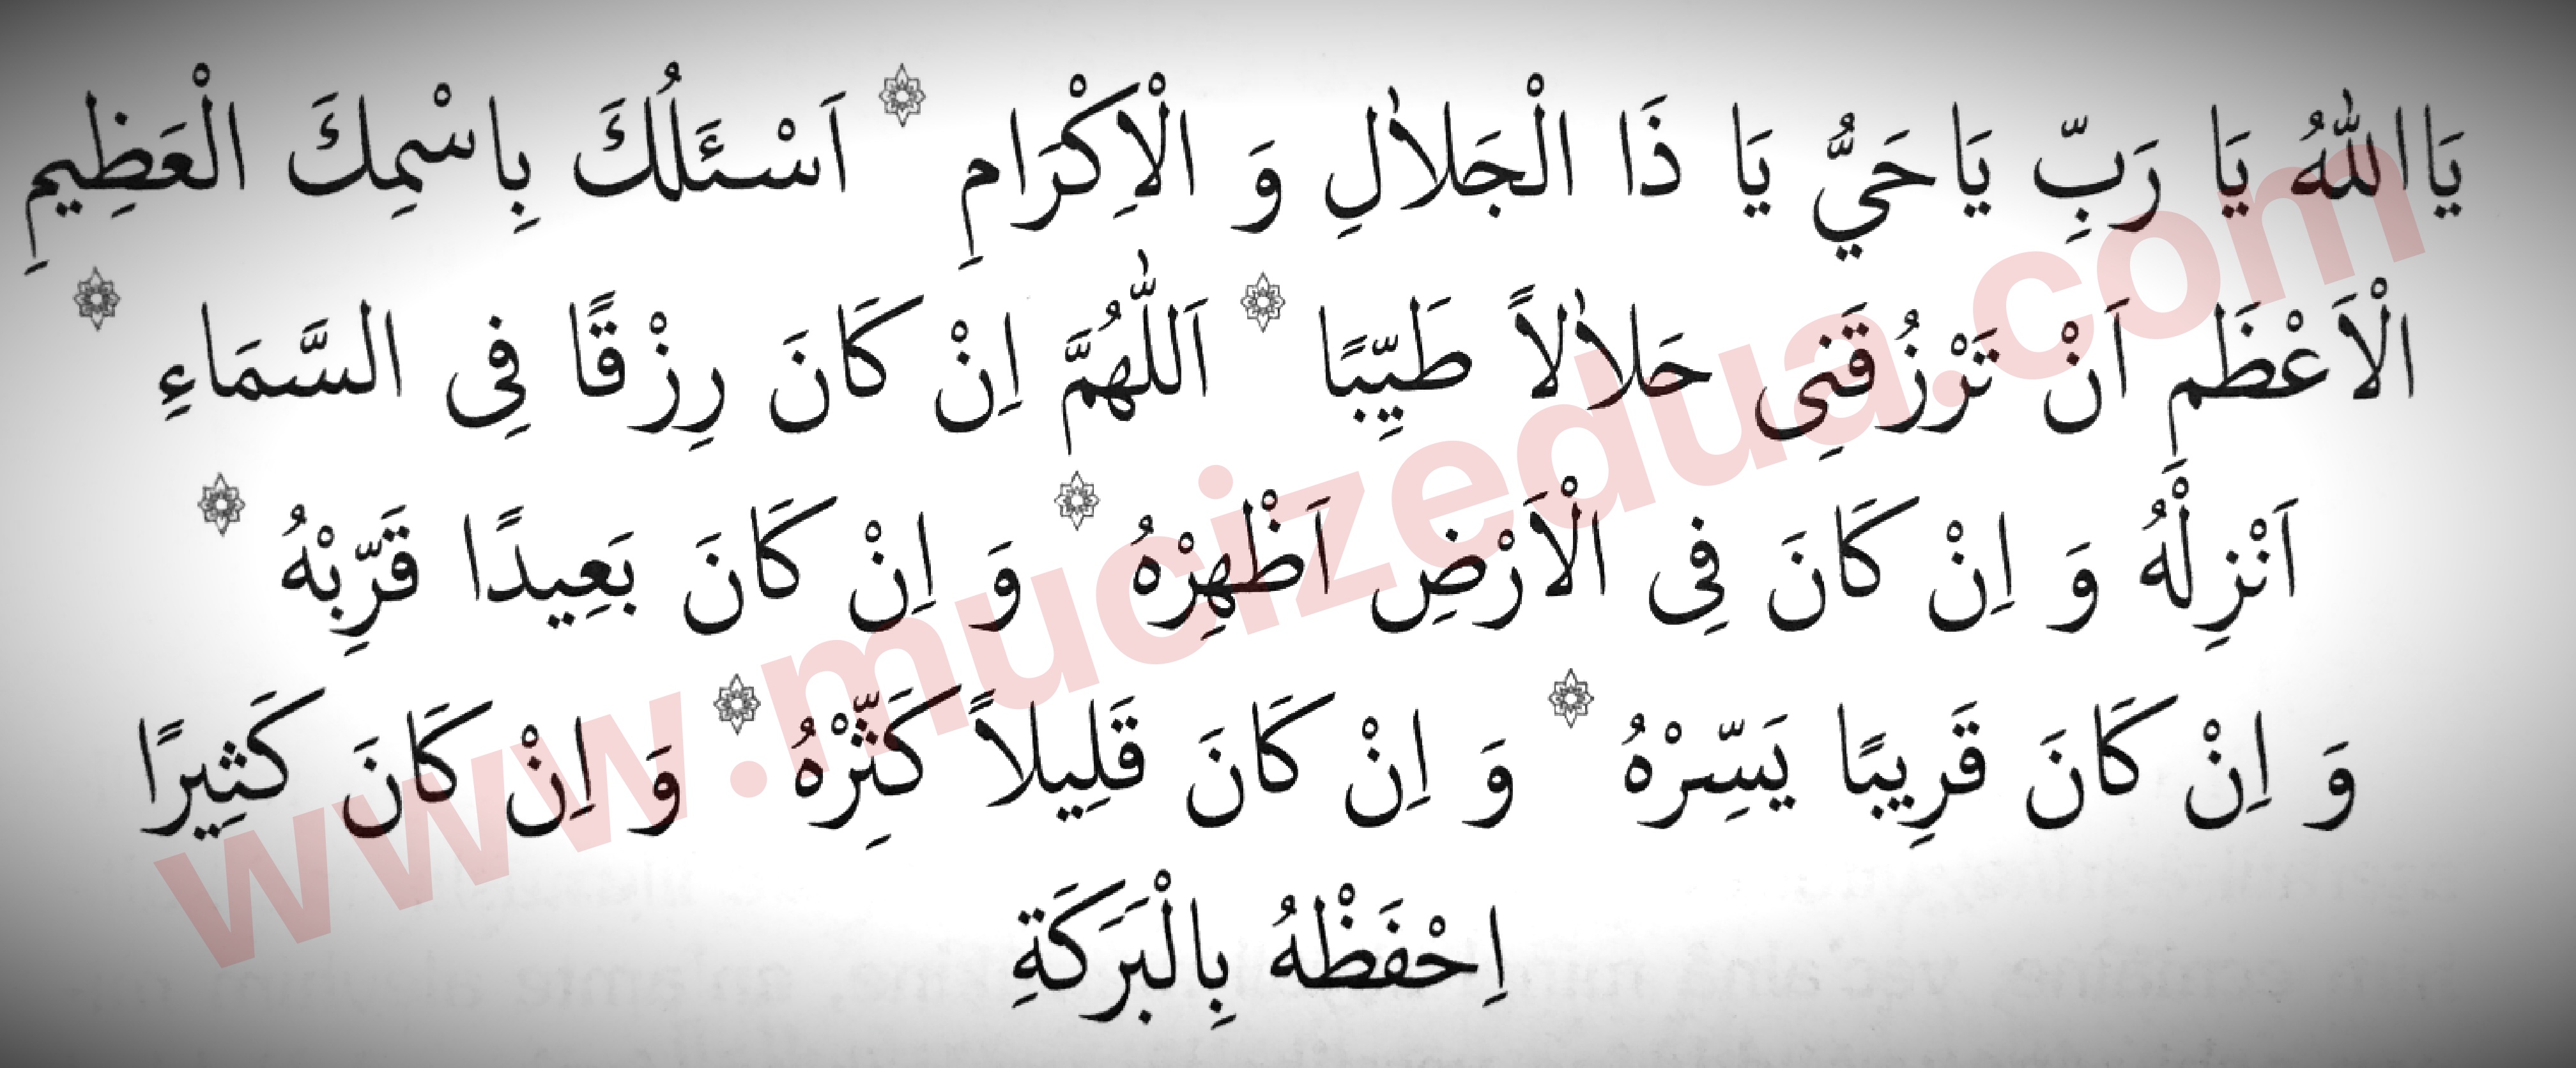 يَااَللّٰهُ يَا رَبِّ يَاحَيُّ يَا ذَا الْجَلَالِ وَ الْاِكْرَامِ ۞ اَسْـَٔلُكَ بِاسْمِكَ الْعَظِيمِ
الْاَعْظَمِ اَنْ تَرْزُقَنِى حَلَالاً طَيِّبًا ۞ اَللّٰهُمَّ اِنْ كَانَ رِزْقًا فِى السَّمَاءِ ۞
اَنْزِلْهُ وَ اِنْ كَانَ فِى الْاَرْضِ اَظْهِرْهُ ۞ وَ اِنْ كَانَ بَعِيدًا قَرِّبْهُ ۞
وَ اِنْ كَانَ قَرِيبًا يَسِّرْهُ ۞ وَ اِنْ كَانَ قَلِيلاً كَثِّرْهُ ۞ وَ اِنْ كَانَ كَثِيرًا
اِحْفَظْهُ بِالْبَرَكَةِ
www.mucizedua.com